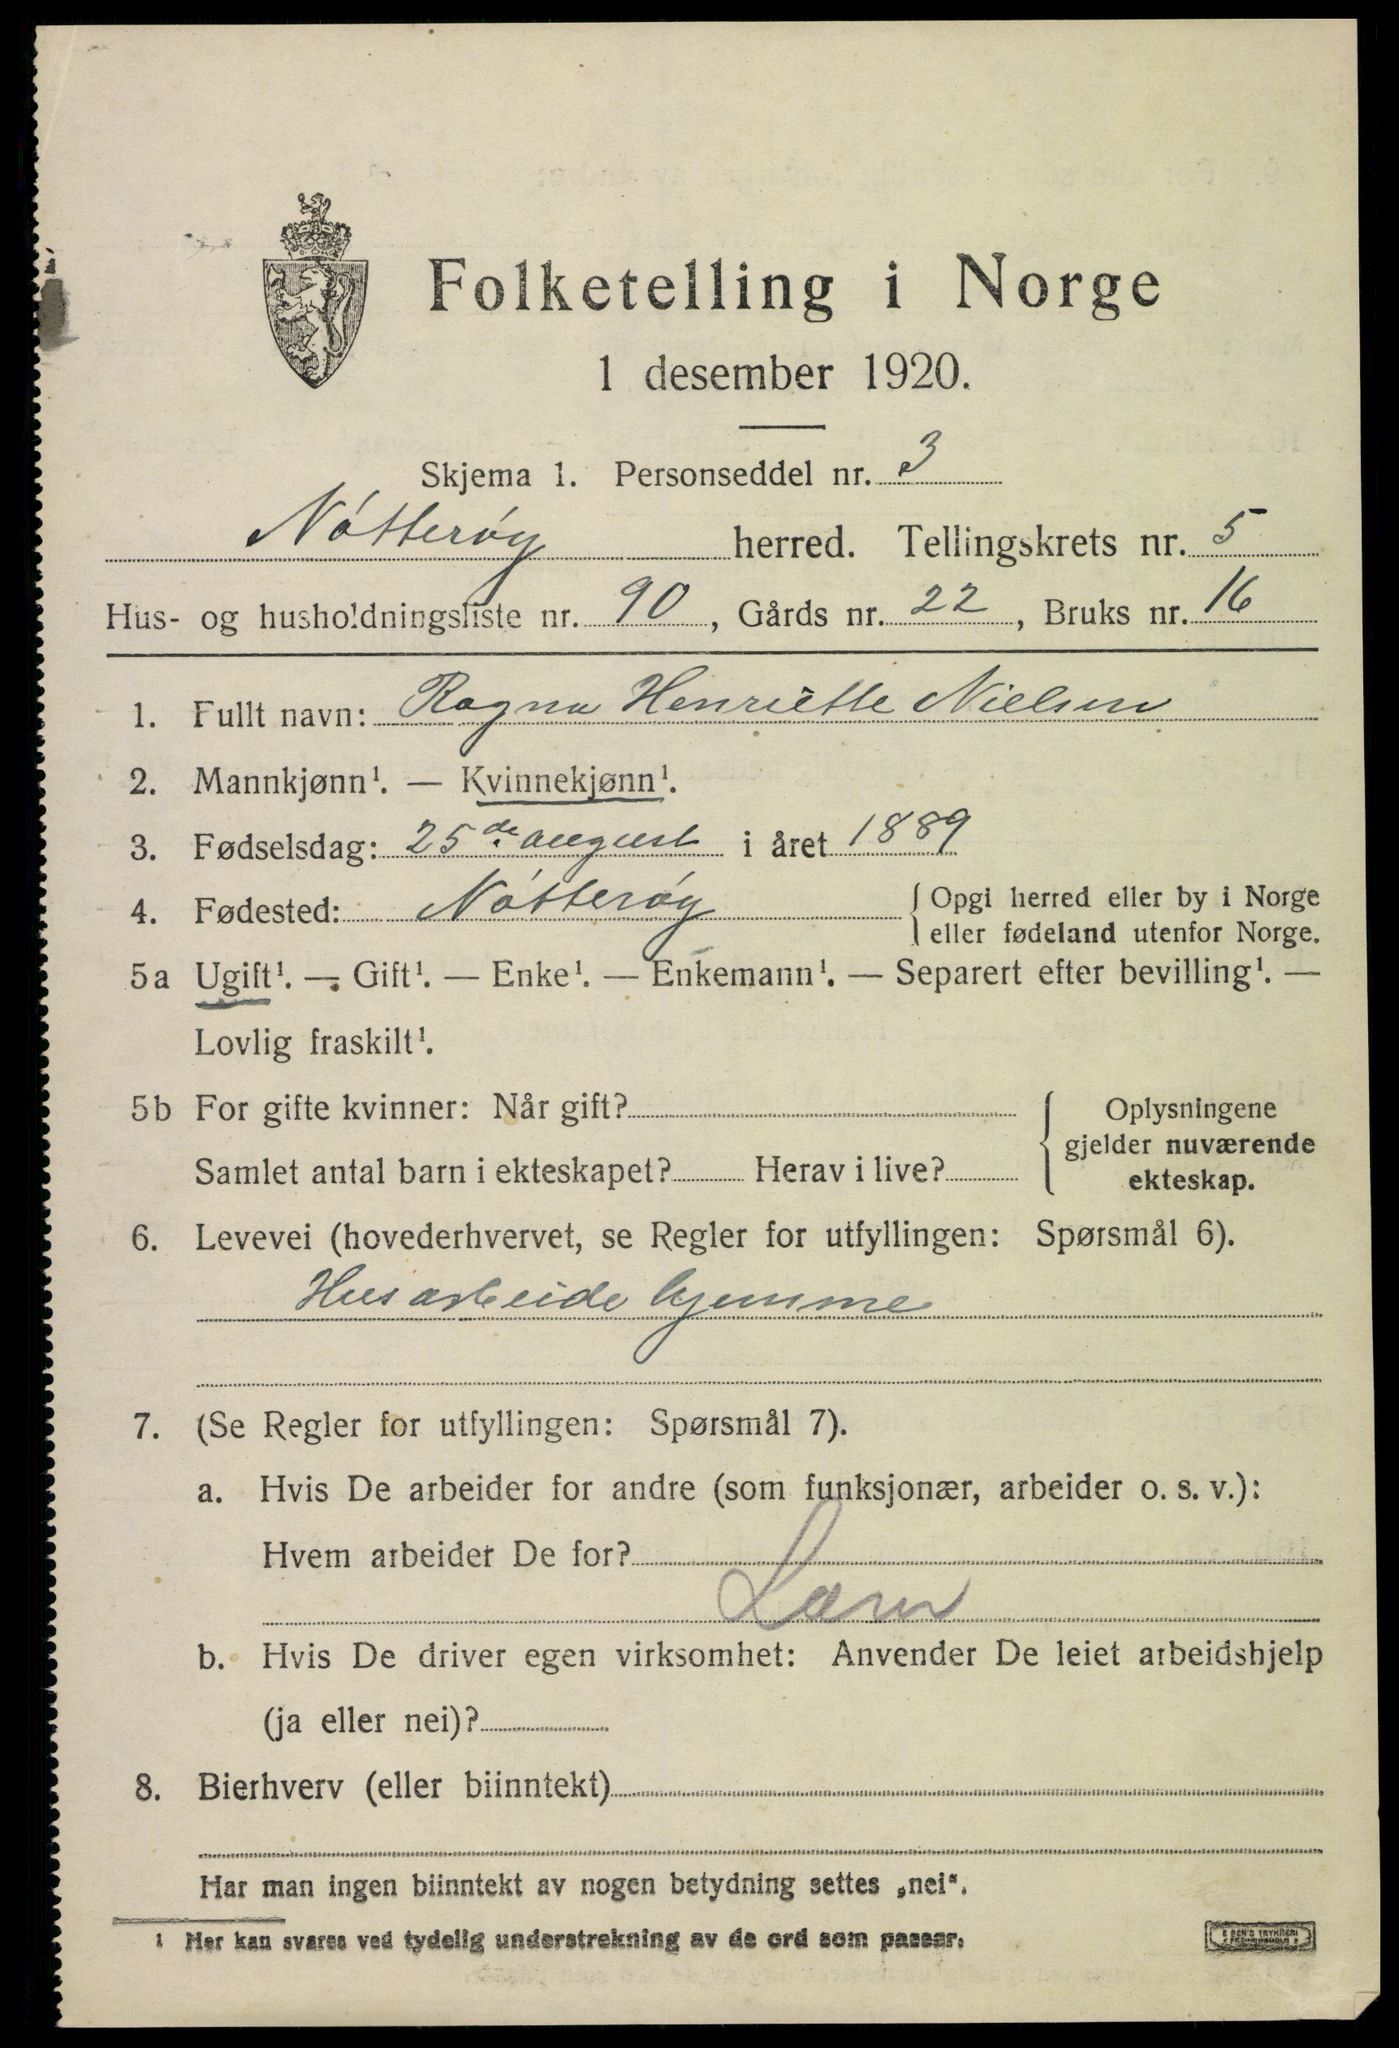 Folketelling i Norge
1 desember 1920.
Skjema 1. Personseddel nr. 3
Nøtterøy herred. Tellingskrets nr. 5
Hus- og husholdningsliste nr. 90, Gårds nr. 22, Bruks nr. 16
1. Fullt navn: Ragna Henriette Nielsen
2. Mannkjønn¹. — Kvinnekjønn¹.
3. Fødselsdag: 25de august i året 1889
4. Fødested: Nøtterøy { Opgi herred eller by i Norge
eller fødeland utenfor Norge.
5a Ugift¹. — Gift¹. — Enke¹. — Enkemann¹. — Separert efter bevilling¹. —
Lovlig fraskilt¹.
5b For gifte kvinner: Når gift? { Oplysningene
gjelder nuværende
Samlet antal barn i ekteskapet? Herav i live? ekteskap.
6. Levevei (hovederhvervet, se Regler for utfyllingen: Spørsmål 6).
Husarbeide hjemme
7. (Se Regler for utfyllingen: Spørsmål 7).
a. Hvis De arbeider for andre (som funksjonær, arbeider o. s. v.):
Hvem arbeider De for?
b. Hvis De driver egen virksomhet: Anvender De leiet arbeidshjelp
(ja eller nei)?
8. Bierhverv (eller biinntekt)
Har man ingen biinntekt av nogen betydning settes „nei".
1 Her kan svares ved tydelig understrekning av de ord som passer.